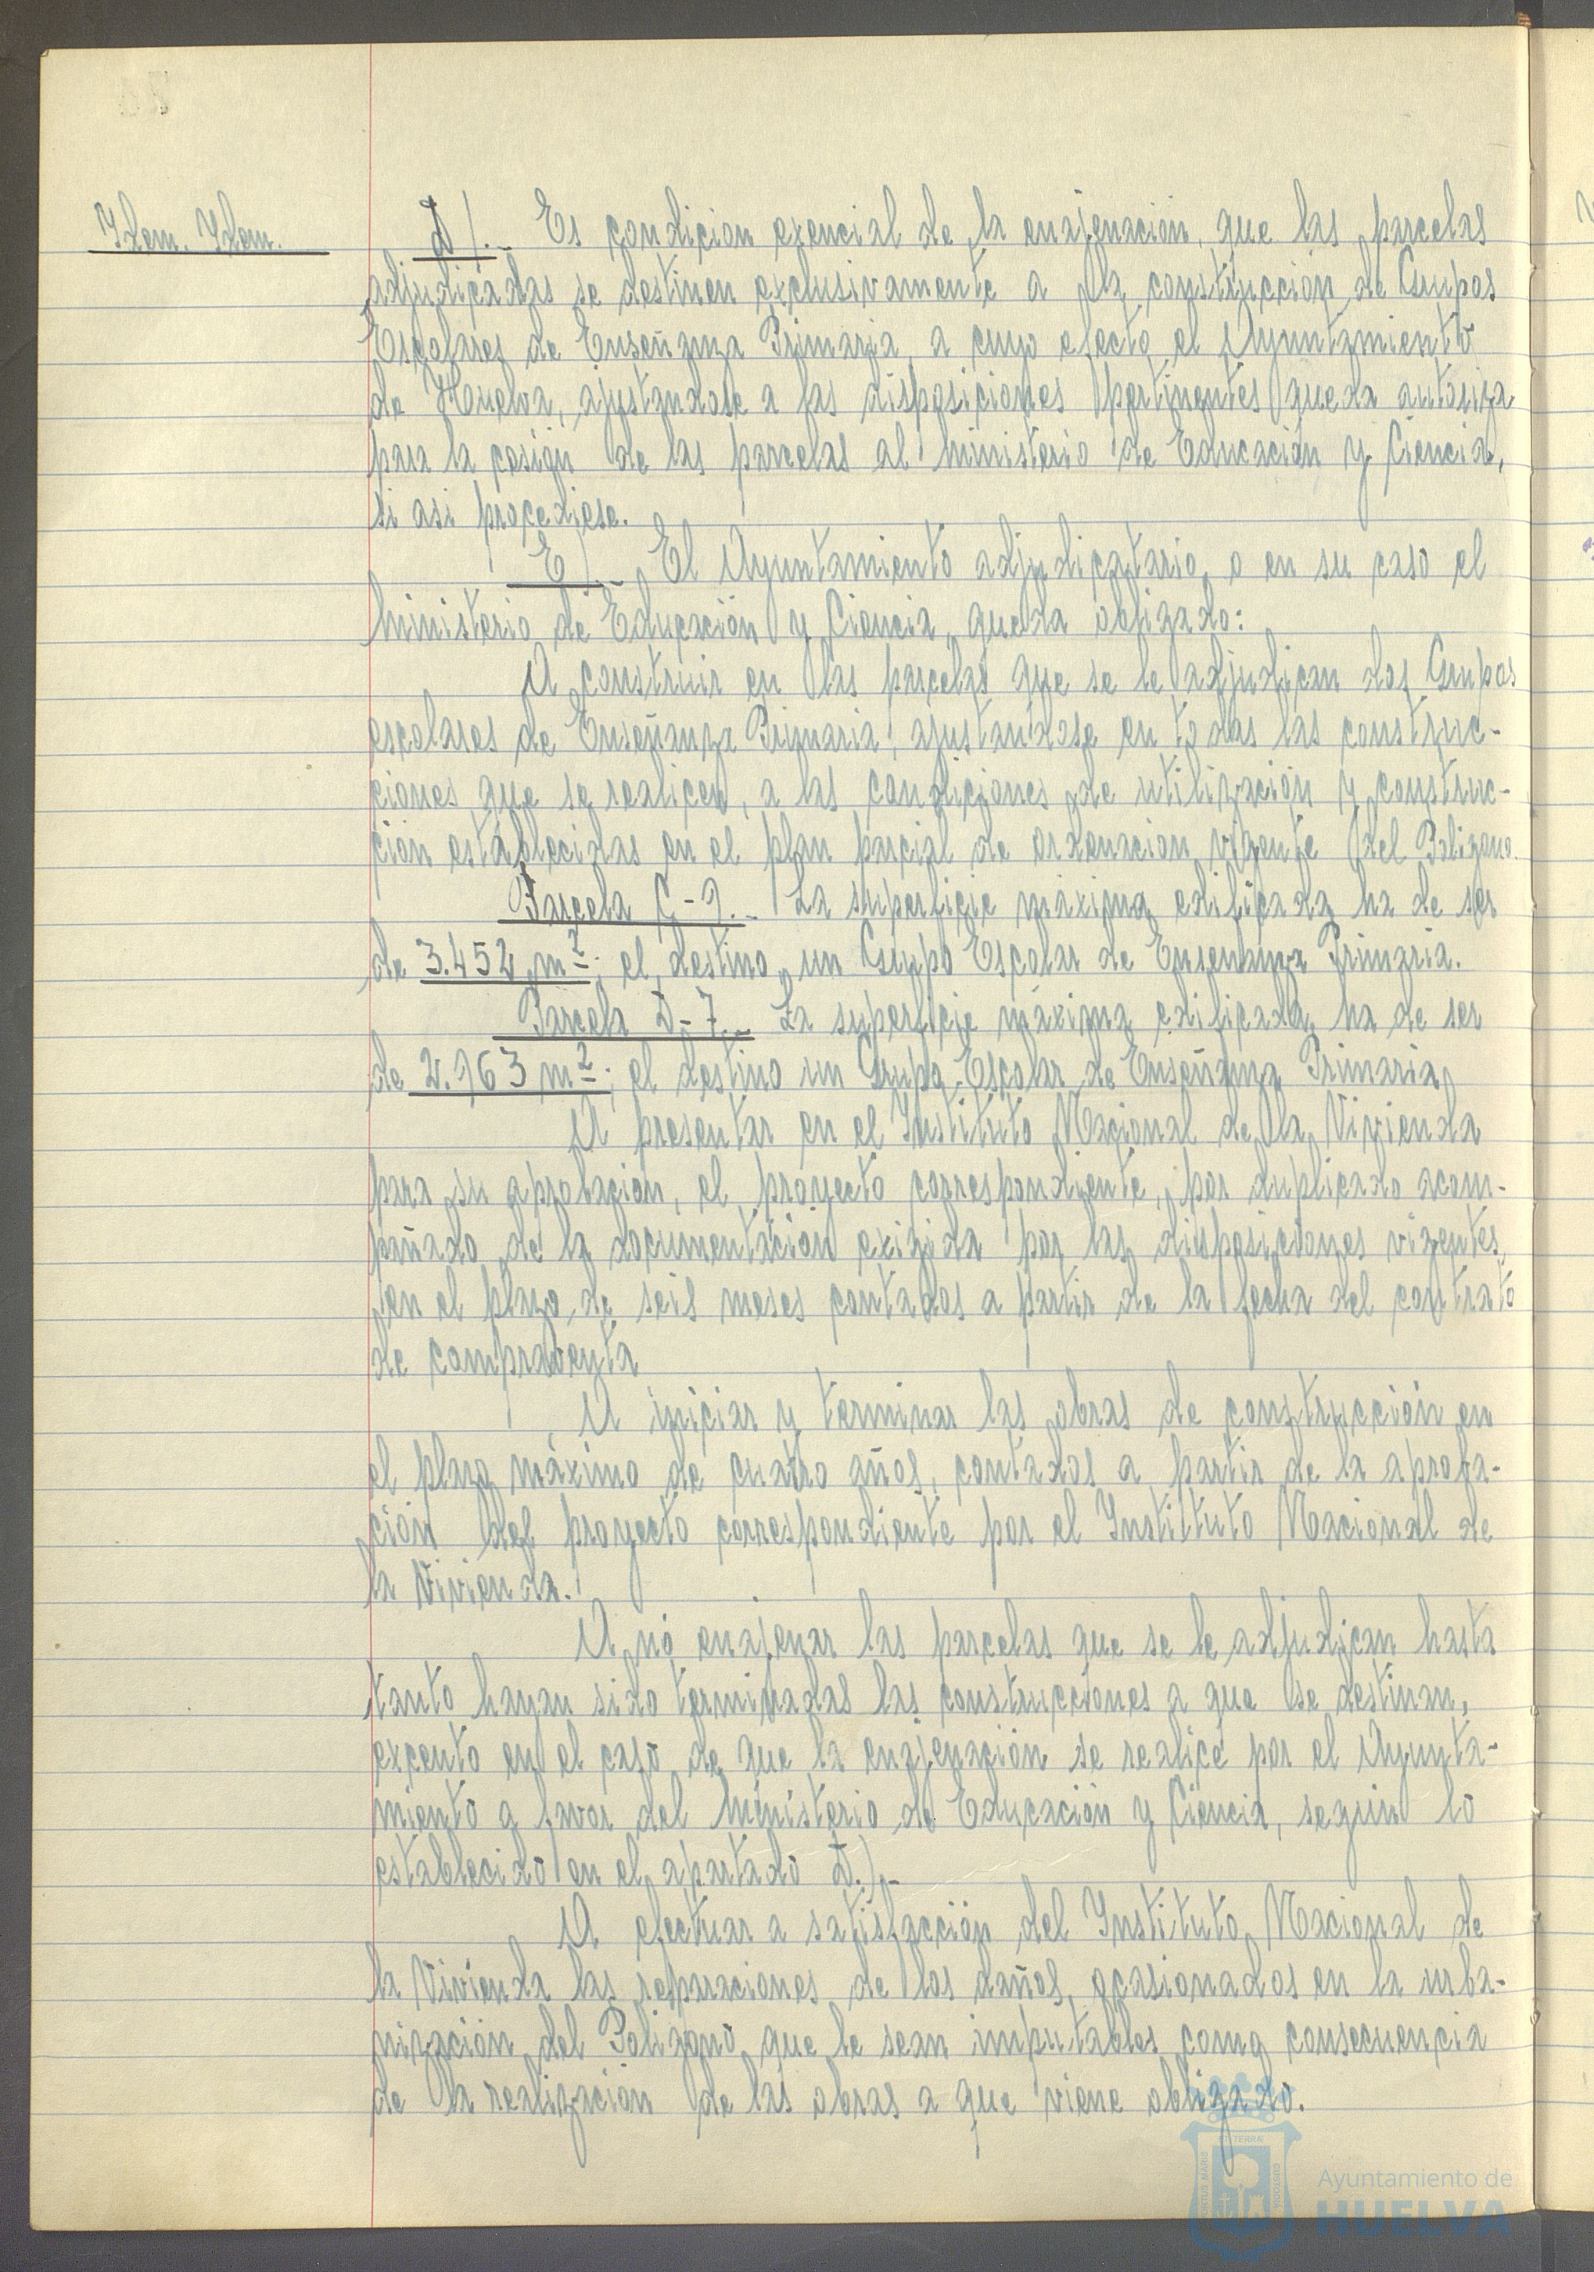 Idem. Idem.
D).- Es condicion exencial de la enajenación, que las parcelas
adjudicadas se destinen exclusivamente a la construcción de Grupos
Escolares de Enseñanza Primaria, a cuyo efecto el Ayuntamiento
de Huelva, ajustandose a las disposiciones pertinentes queda autoriza
para la cesión de las parcelas al Ministerio de Educación y Ciencia,
si asi procediese.
E).- El Ayuntamiento adjudicatario, o en su caso el
Ministerio de Educación y Ciencia, queda obligado:
A construir en las parcelas que se le adjudican dos Grupos
escolares de Enseñanza Primaria, ajustandose en todas las construc-
ciones que se realicen, a las condiciones de utilización y construc-
ción establecidas en el plan parcial de ordenación vigente del Poligono.
Parcela C-9.- La superficie máxima edificada ha de ser
de 3.452 m²; el destino un Grupo Escolar de Enseñanza Primaria.
Parcela D-7.- La superficie máxima edificada ha de ser
de 2.963 m²; el destino un Grupo Escolar de Enseñanza Primaria
A presentar en el Instituto Nacional de la Vivienda
para su aprobación, el proyecto correspondiente, por duplicado acom-
pañado de la documentación exigida por las disposiciones vigentes,
en el plazo de seis meses contados a partir de la fecha del contrato
de compraventa
A iniciar y terminar las obras de construcción en
el plazo máximo de cuatro años, contados a partir de la aproba-
ción del proyecto correspondiente por el Instituto Nacional de
la Vivienda.
A nó enajenar las parcelas que se le adjudican hasta
tanto hayan sido terminadas las construcciones a que se destinan,
excento en el caso de que la enajenación se realice por el Ayunta-
miento a favor del Ministerio de Educación y Ciencia, según lo
establecido en el apartado D.).-
A efectuar a satisfacción del Instituto Nacional de
la Vivienda las reparaciones de los daños, ocasionados en la urba-
nización del Poligono que le sean imputables como consecuencia
de la realización de las obras a que viene obligado.
Ayuntamiento de
HUELVA